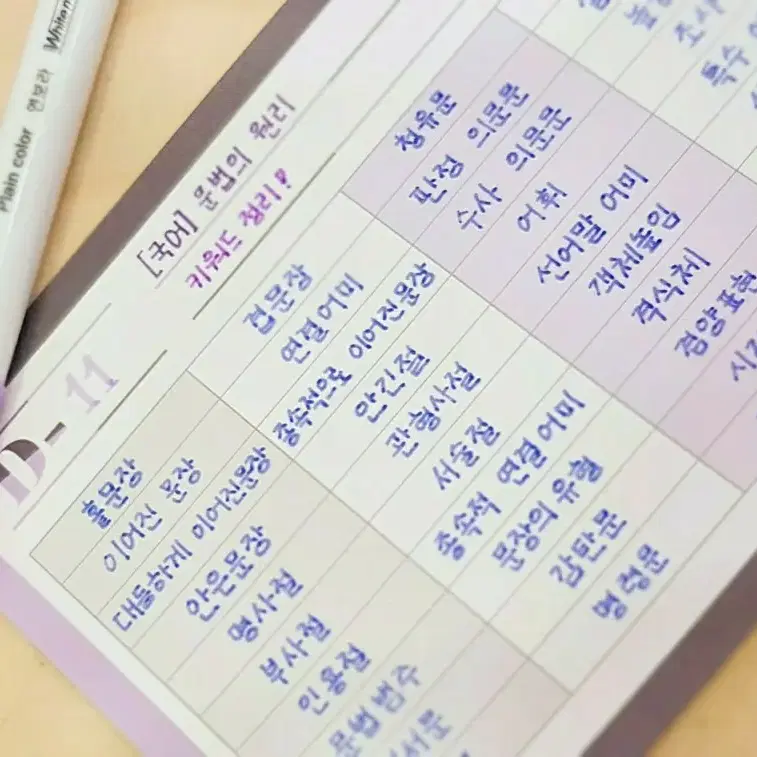 Plain color 연보라 White
[국어] 문법의 원리
키워드 정리!
D-11
홑문장
이어진 문장
대등하게 이어진문장
안은문장
명사절
부사절
인용절
문법범수
겹문장
연결어미
종속적으로 이어진문장
안긴절
관형사절
서술절
종속적 연결어미
문장의 유형
감탄문
명령문
청유문
판정 의문문
수사 의문문
어휘
선어말 어미
객체높임
격식체
겸양표현
조사
특수